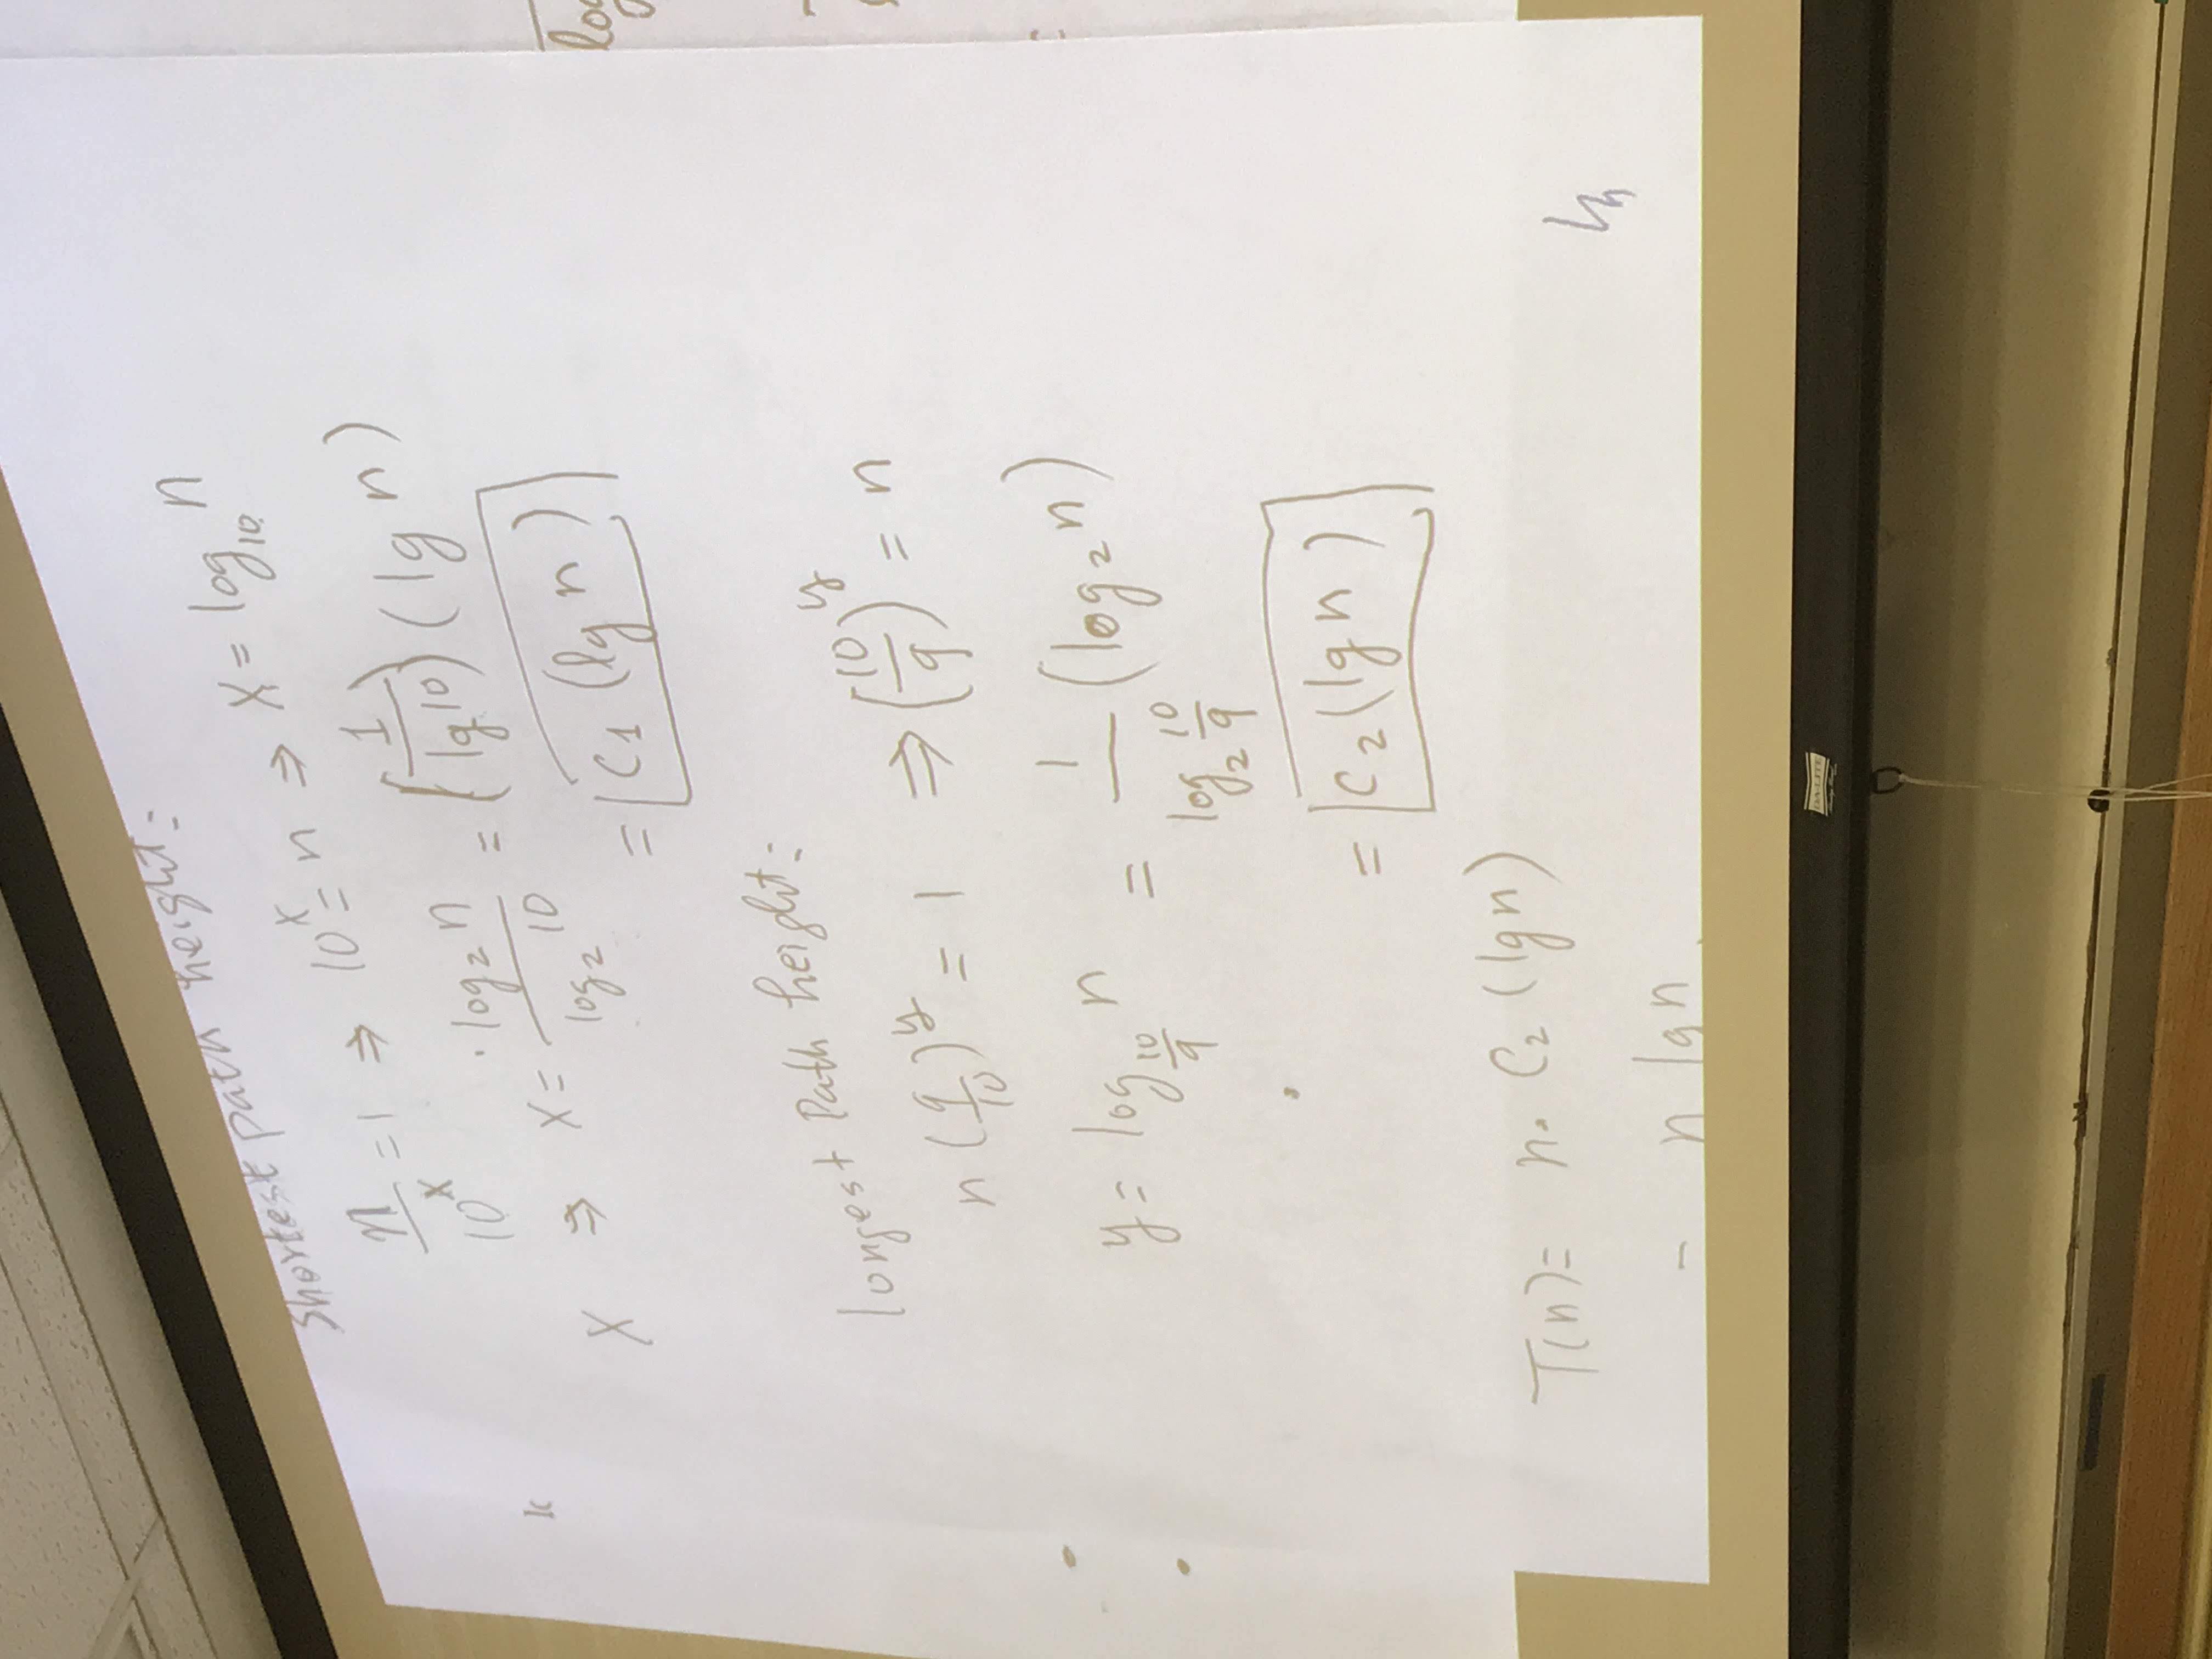 Shortest path height:
n/10^x = 1 ⇒ 10^x = n ⇒ X = log₁₀ n
X ⇒ X = log₂ n / log₂ 10 = (1/lg 10) (lg n)
= C₁ (lg n)
longest Path height:
n (9/10)^y = 1 ⇒ (10/9)^y = n
y = log_{10/9} n = 1/(log₂ 10/9) (log₂ n)
= C₂ (lg n)
T(n) = n · C₂ (lg n)
n lg n
log
DA-LITE